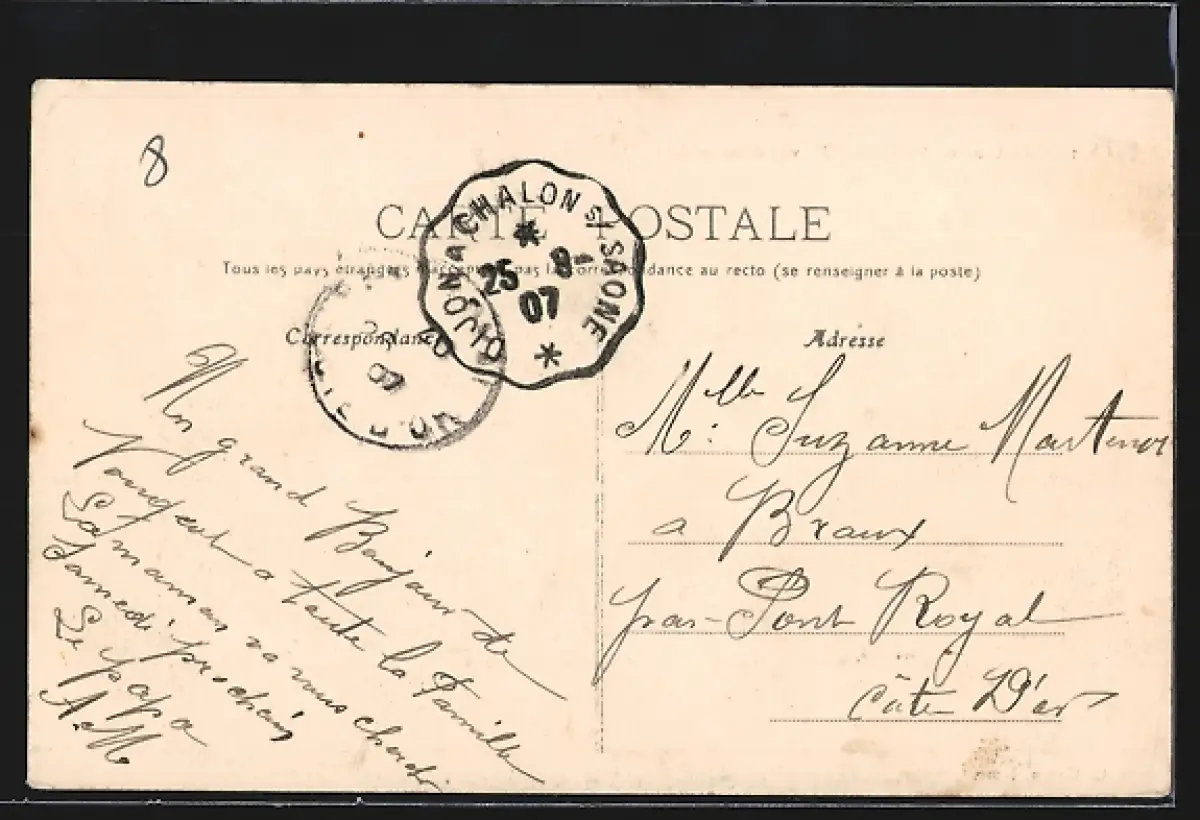 8
CARTE POSTALE
Tous les pays étrangers n'acceptent pas la correspondance au recto (se renseigner à la poste)
DIJON A CHALON S/ SAONE
25 8
07
Correspondance
Adresse
Un grand Bonjour de
Vougeot a toute la Famille
La maman va vous cherch
Samedi prochain
Le papa
A. M
Melle Suzanne
a Braux
par Pont Royal
Côte D'or
07